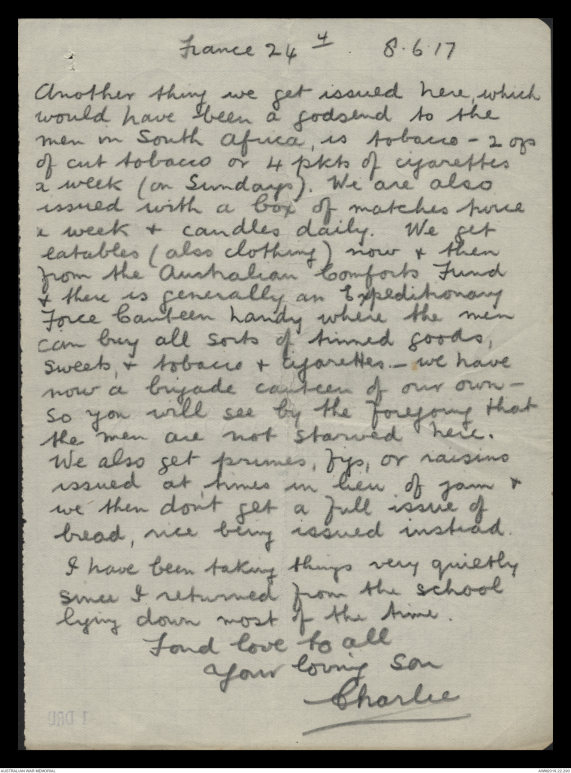 France 24 4 8.6.17
Another thing we get issued here, which
would have been a godsend to the
men in South Africa, is tobacco - 2 ozs
of cut tobacco or 4 pkts of cigarettes
a week (on Sundays). We are also
issued with a box of matches twice
a week + candles daily. We get
eatables (also clothing) now + then
from the Australian Comforts Fund
+ there is generally an Expeditionary
Force Canteen handy where the men
can buy all sorts of tinned goods,
sweets, + tobacco + cigarettes - we have
now a brigade canteen of our own -
So you will see by the foregoing that
the men are not starved here.
We also get prunes, figs, or raisins
issued at times in lieu of jam +
we then don't get a full issue of
bread, rice being issued instead.
I have been taking things very quietly
since I returned from the school
lying down most of the time.
Fond love to all
Your loving son
Charlie
1 DRL
AUSTRALIAN WAR MEMORIAL